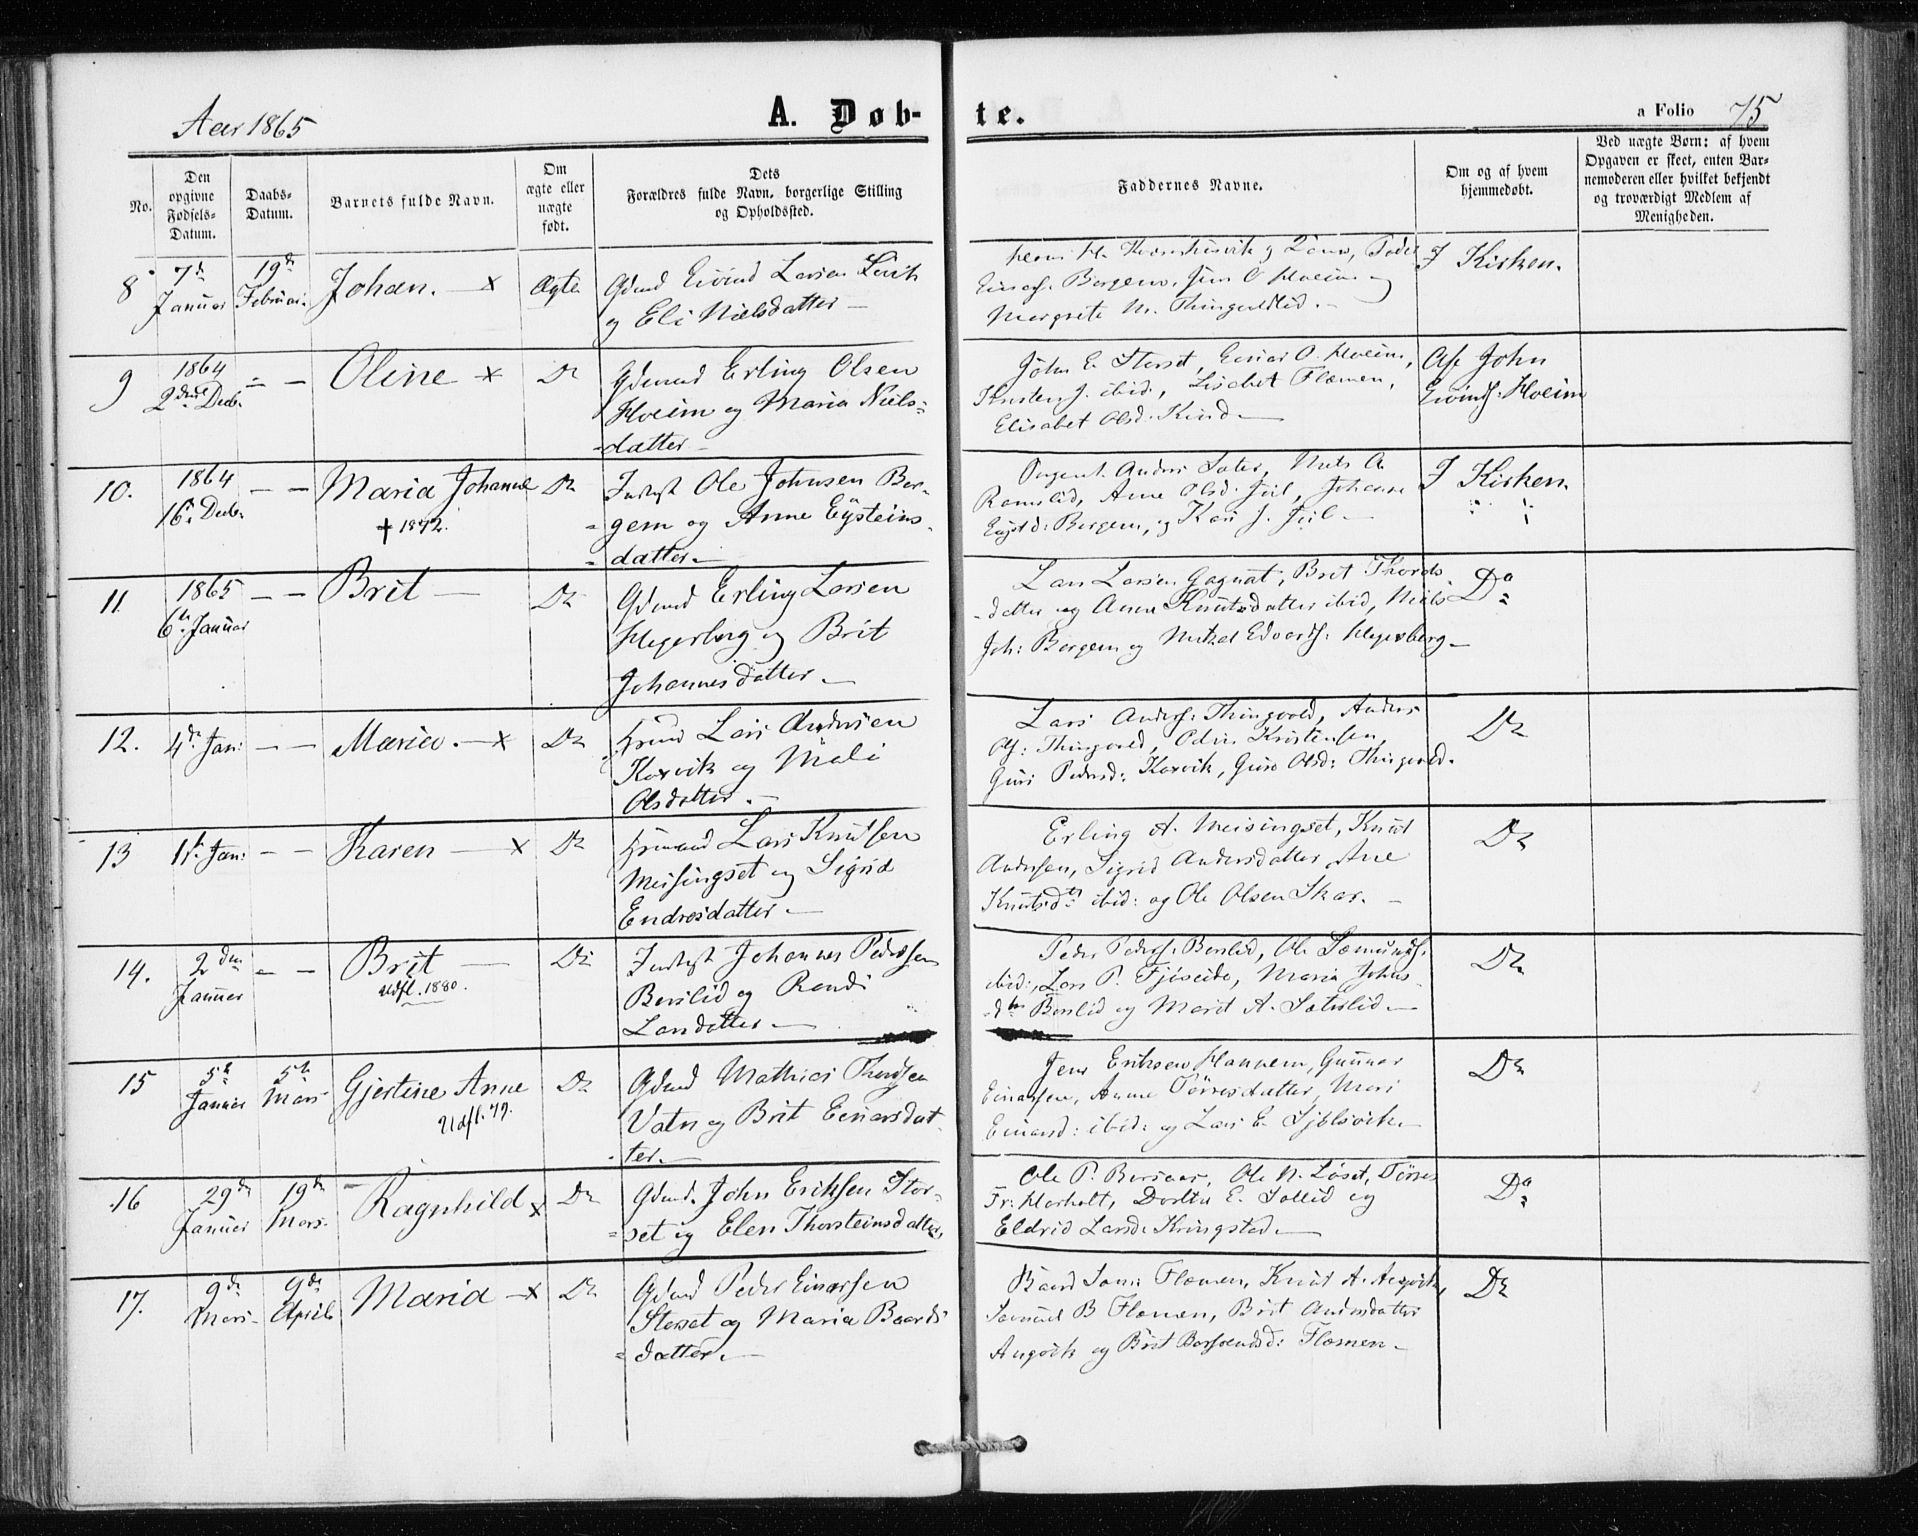 Aar 1865
A. Døb-
te.
a Folio 75
No.
Den opgivne Fødsels-Datum.
Daabs-Datum.
Barnets fulde Navn.
Om ægte eller uægte født.
Dets Forældres fulde Navn, borgerlige Stilling og Opholdssted.
Faddernes Navne.
Om og af hvem hjemmedøbt.
Ved uægte Børn: af hvem Opgaven er skeet, enten Barnemoderen eller hvilket bekjendt og troværdigt Medlem af Menigheden.
8 7de Januar 19de Februar. Johan. — x Ægte
Gdmd Eivind Larsen
og Eli Nielsdatter —
Borgem, O Hoeim og
Margrete N. Thingvoldlid. —
I Kirken.
9 1864 2den Decb. — — Oline — x Do
Gdmand Erling Olsen
Hoeim og Maria Niels=
=datter —
John E. Storset, Einar O. Hoeim,
Kristen J. ibid, Lisabet Flemen,
Elisabet Olsd.
Af John
Eivinds: Hoeim
10. 1864 16de Decb. — — Maria Johanna Do
+ 1872.
Inderst Ole Johnsen Bor-
=gem og Anne Eysteins-
=datter. —
Sergent Anders Sæter, Niels A
Romslid, Anne Olsd. Johanne
Eystd: Borgem, og Kari J.
I Kirken.
11 1865 6te Januar — — Brit — Do
Gdmd Erling Larsen
Hegerberg og Brit
Johannesdatter. —
Lars Larsen Gagnat, Brit Thords-
-datter og Anne Knutsdatter ibid, Niels
Joh: Borgem og Mikkel Edvards: Hegerberg —
Do
12. 4de Jan: — — Maria. — x Do
Lars Andersen
Korsvik og Mali
Olsdatter. —
Lars Anders: Thingvold, Anders
Ols: Thingvold, Peder Kristensen,
Guri Pedersd: Korsvik, Guro Olsd: Thingvold.
Do
13 1ste Jan: — — Karen — x Do
Lars Knutsen
Meisingset og Sigrid
Endresdatter. —
Erling A. Meisingset, Knut
Andersen, Sigrid Andersdatter, Ane
Knutsdtr ibid: og Ole Olsen Skar. —
Do
14. 2den Januar — — Brit — Do
Udfl. 1880.
Inderst Johannes Pedersen
Berslid og Randi
Larsdatter —
Peder Peders: Berslid, Ole Sæmunds:
ibid:, Lars P. Fjøseide, Maria Johns-
-dtr Berslid og Marit A. Sæterlid —
Do
15 5te Januar 5te Mars Gjertine Anne Do
Udfl. 79.
Gdmd Mathias Thordsen
Vatn og Brit Einarsdat-
-ter. —
Jens Eriksen Hannem, Gunnar
Einarsen, Anne Tørresdatter, Mari
Einarsd: ibid: og Lars E. —
Do
16 29de Januar 19de Mars. Ragnhild x Do
Gdmd. John Eriksen Stor-
=set og Elen Thorsteinsdatter.
Ole P. Bersaas, Ole N. Løset, Tørres
Fr: Morholt, Dorthe E. Sollid og
Eldrid Larsd. Kringsted. —
Do
17. 9de Mars- 9de April Maria — x Do
Gdmd Peder Einarsen
Storset og Maria Baards
=datter. —
Baard Sam: Flemen, Knut A. Angvik,
Samuel B Flemen, Brit Andersdatter
Angvik og Brit Flemen. —
Do